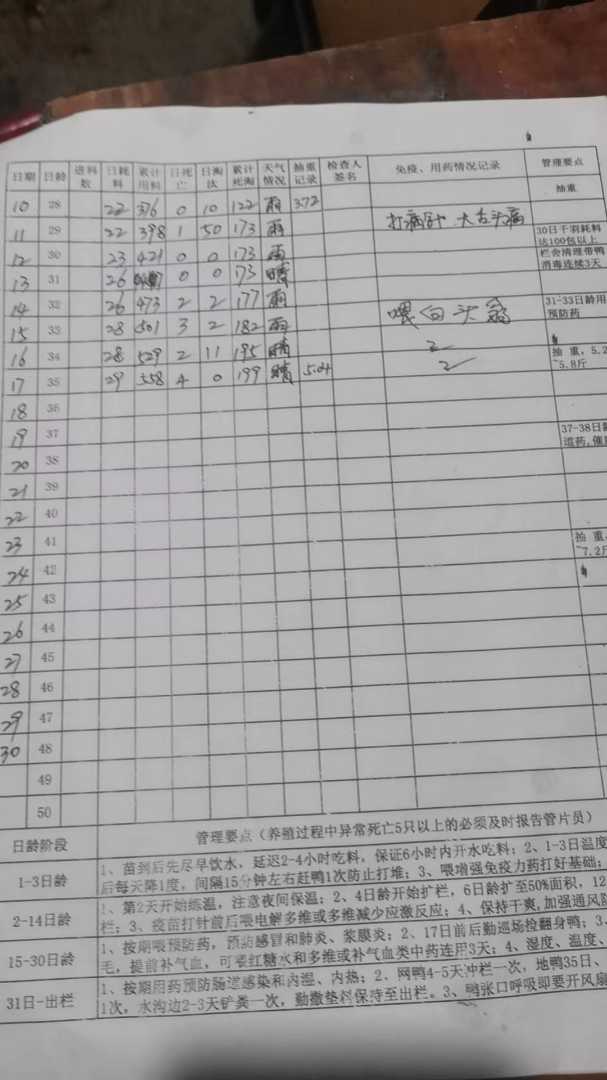 日期 日龄 进料数 日耗料 累计用料 日死亡 日淘汰 累计死淘 天气情况 抽重记录 检查人签名 免疫、用药情况记录 管理要点
抽重
10 28 22 376 0 10 122 雨 3.72
11 29 22 398 1 50 173 雨 打病针 大舌头病 30日千羽耗料达100包以上
12 30 23 421 0 0 173 雨 栏舍清理带鸭消毒连续3天
13 31 26 0 0 173 晴
14 32 26 473 2 2 177 雨 喂白头翁 31-33日龄用预防药
15 33 28 501 3 2 182 雨
16 34 28 529 2 11 195 晴 抽重,5.2
17 35 29 558 4 0 199 晴 5.04 ~5.8斤
18 36
19 37 37-38日龄
20 38 道药,催
21 39
22 40
23 41 抽重
24 42 ~7.2斤
25 43
26 44
27 45
28 46
29 47
30 48
49
50
日龄阶段 管理要点(养殖过程中异常死亡5只以上的必须及时报告管片员)
1-3日龄 1、苗到后先尽早饮水,延迟2-4小时吃料,保证6小时内开水吃料;2、1-3日温度
后每天降1度,间隔15分钟左右赶鸭1次防止打堆;3、喂增强免疫力药打好基础;
2-14日龄 1、第2天开始练温,注意夜间保温;2、4日龄开始扩栏,6日龄扩至50%面积,12
栏;3、疫苗打针前后喂电解多维或多维减少应激反应;4、保持干爽,加强通风
15-30日龄 1、按期喂预防药,预防感冒和肺炎、浆膜炎;2、17日前后勤巡场捡翻身鸭;3、
毛,提前补气血,可喂红糖水和多维或补气血类中药连用3天;4、湿度、温度、
31日-出栏 1、按期用药预防肠道感染和内湿、内热;2、网鸭4-5天冲栏一次,地鸭35日、
1次,水沟边2-3天铲粪一次,勤撒垫料保持至出栏。3、鸭张口呼吸即要开风扇